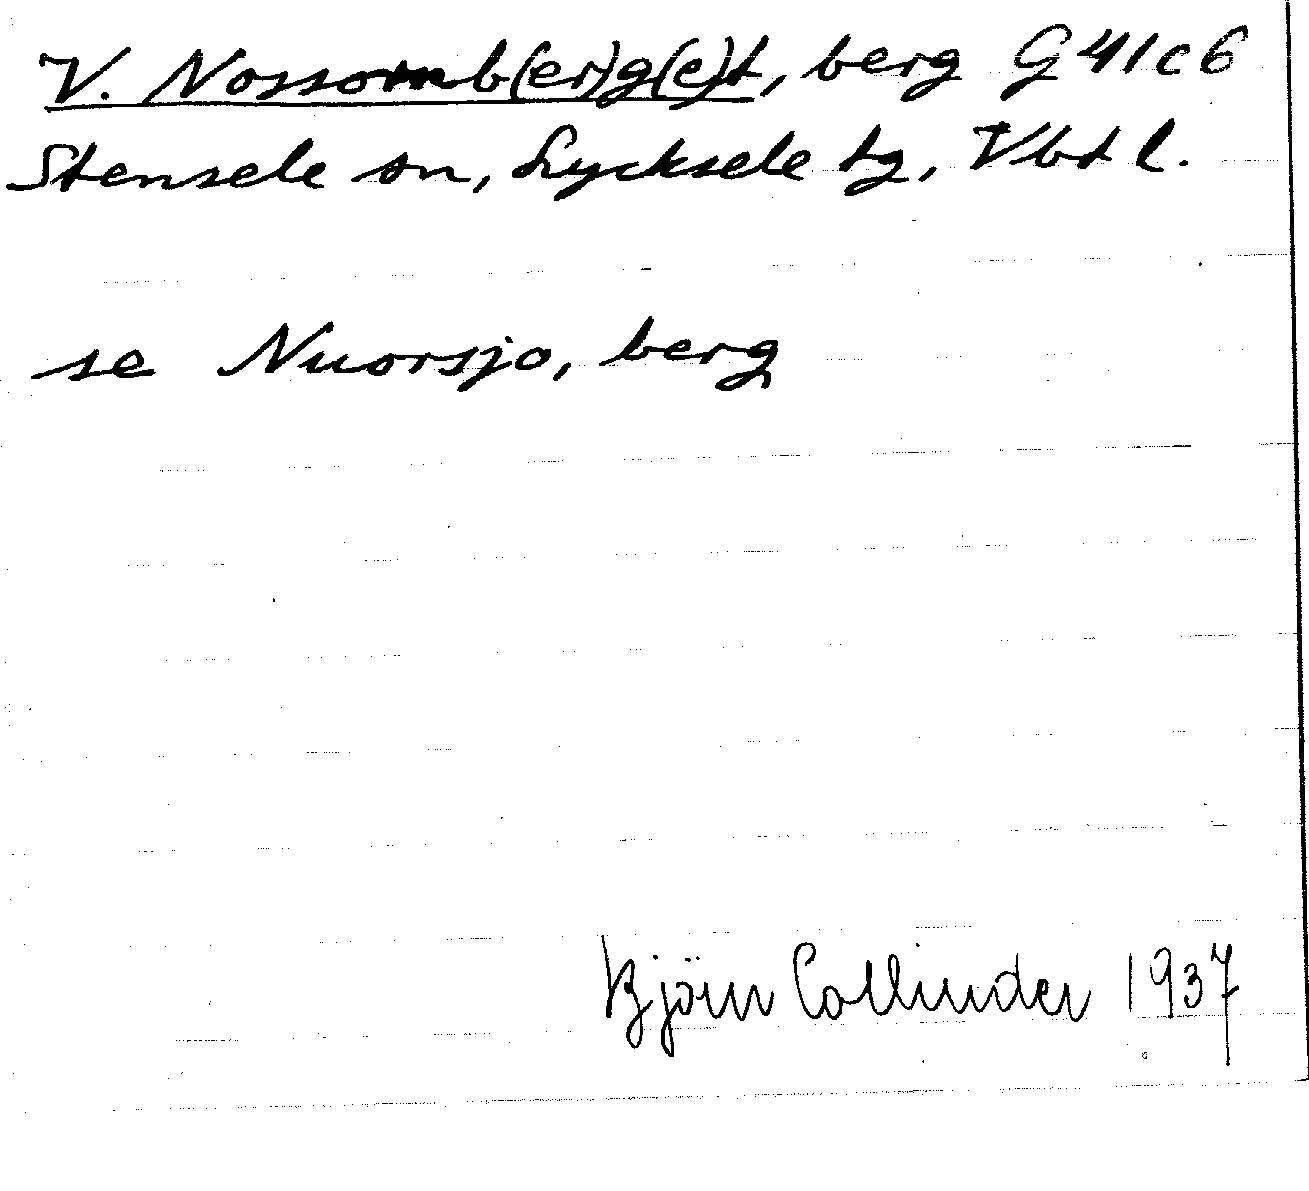 V. Nossornb(er)g(e)t, berg G 41 c 6
Stensele sn, Lycksele tg, Vbt l.
se Nuorsjo, berg
Björn Collinder 1937